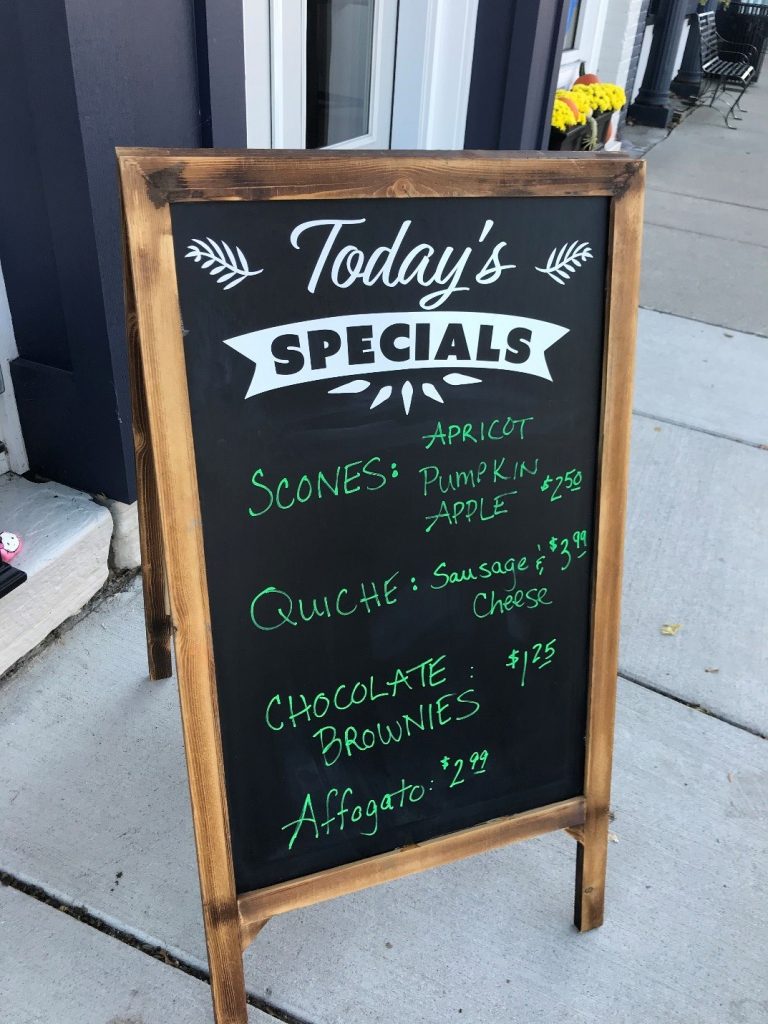 Today's
SPECIALS
SCONES: APRICOT
PUMPKIN
APPLE $2.50
QUICHE: Sausage & $3.99
Cheese
CHOCOLATE : $1.25
BROWNIES
Affogato: $2.99